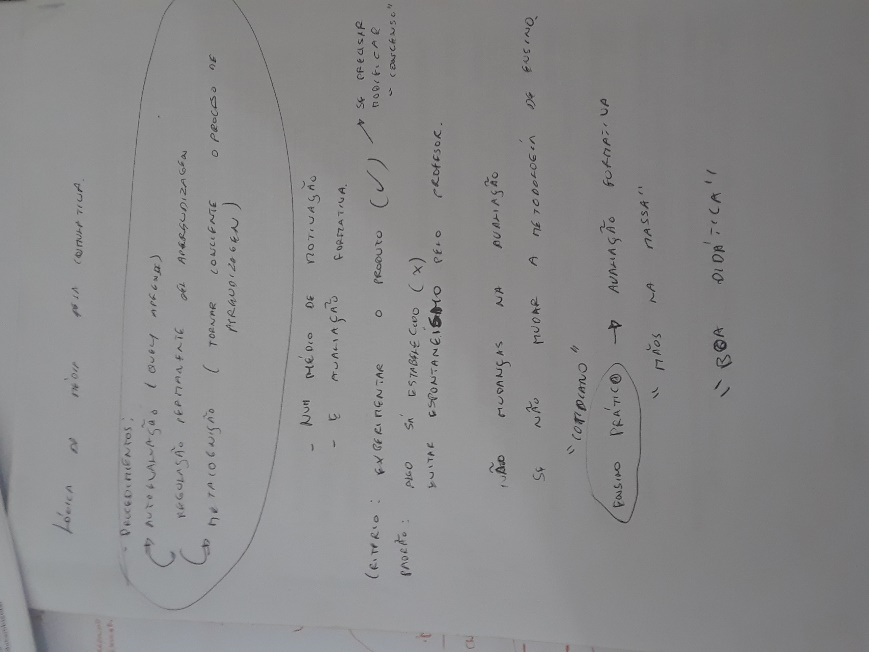 LÓGICA DO MÉDIA PELA COMUNATIVA.
- PROCEDIMIENTOS:
→ AUTOEVALUAÇÃO (QUEM APRENDE)
REGULAÇÃO PERMANENTE DEL APRENDIZAGEN
→ METACOGNIÇÃO ( TORNAR CONCIENTE O PROCESO DE
APRENDIZAGEN )
- NUM MÉDIO DE MOTIVAÇÃO
- E AVALIAÇÃO FORMATIVA.
CRITÉRIO: EXPERIMENTAR O PRODUTO (✓) → SE PRECISAR
MODIFICAR
"CONCENSO"
PADRÃO: ALGO JÁ ESTABLECIDO (X)
EVITAR ESPONTANEISMO PELO PROFESOR.
NÃO MUDANÇAS NA AVALIAÇÃO
SE NÃO MUDAR A METODOLOGÍA DE ENSINO.
"COTIDIANO"
ENSINO PRÁTICO → AVALIAÇÃO FORMATIVA
"MÃOS NA MASSA"
"BOA DIDÁTICA"